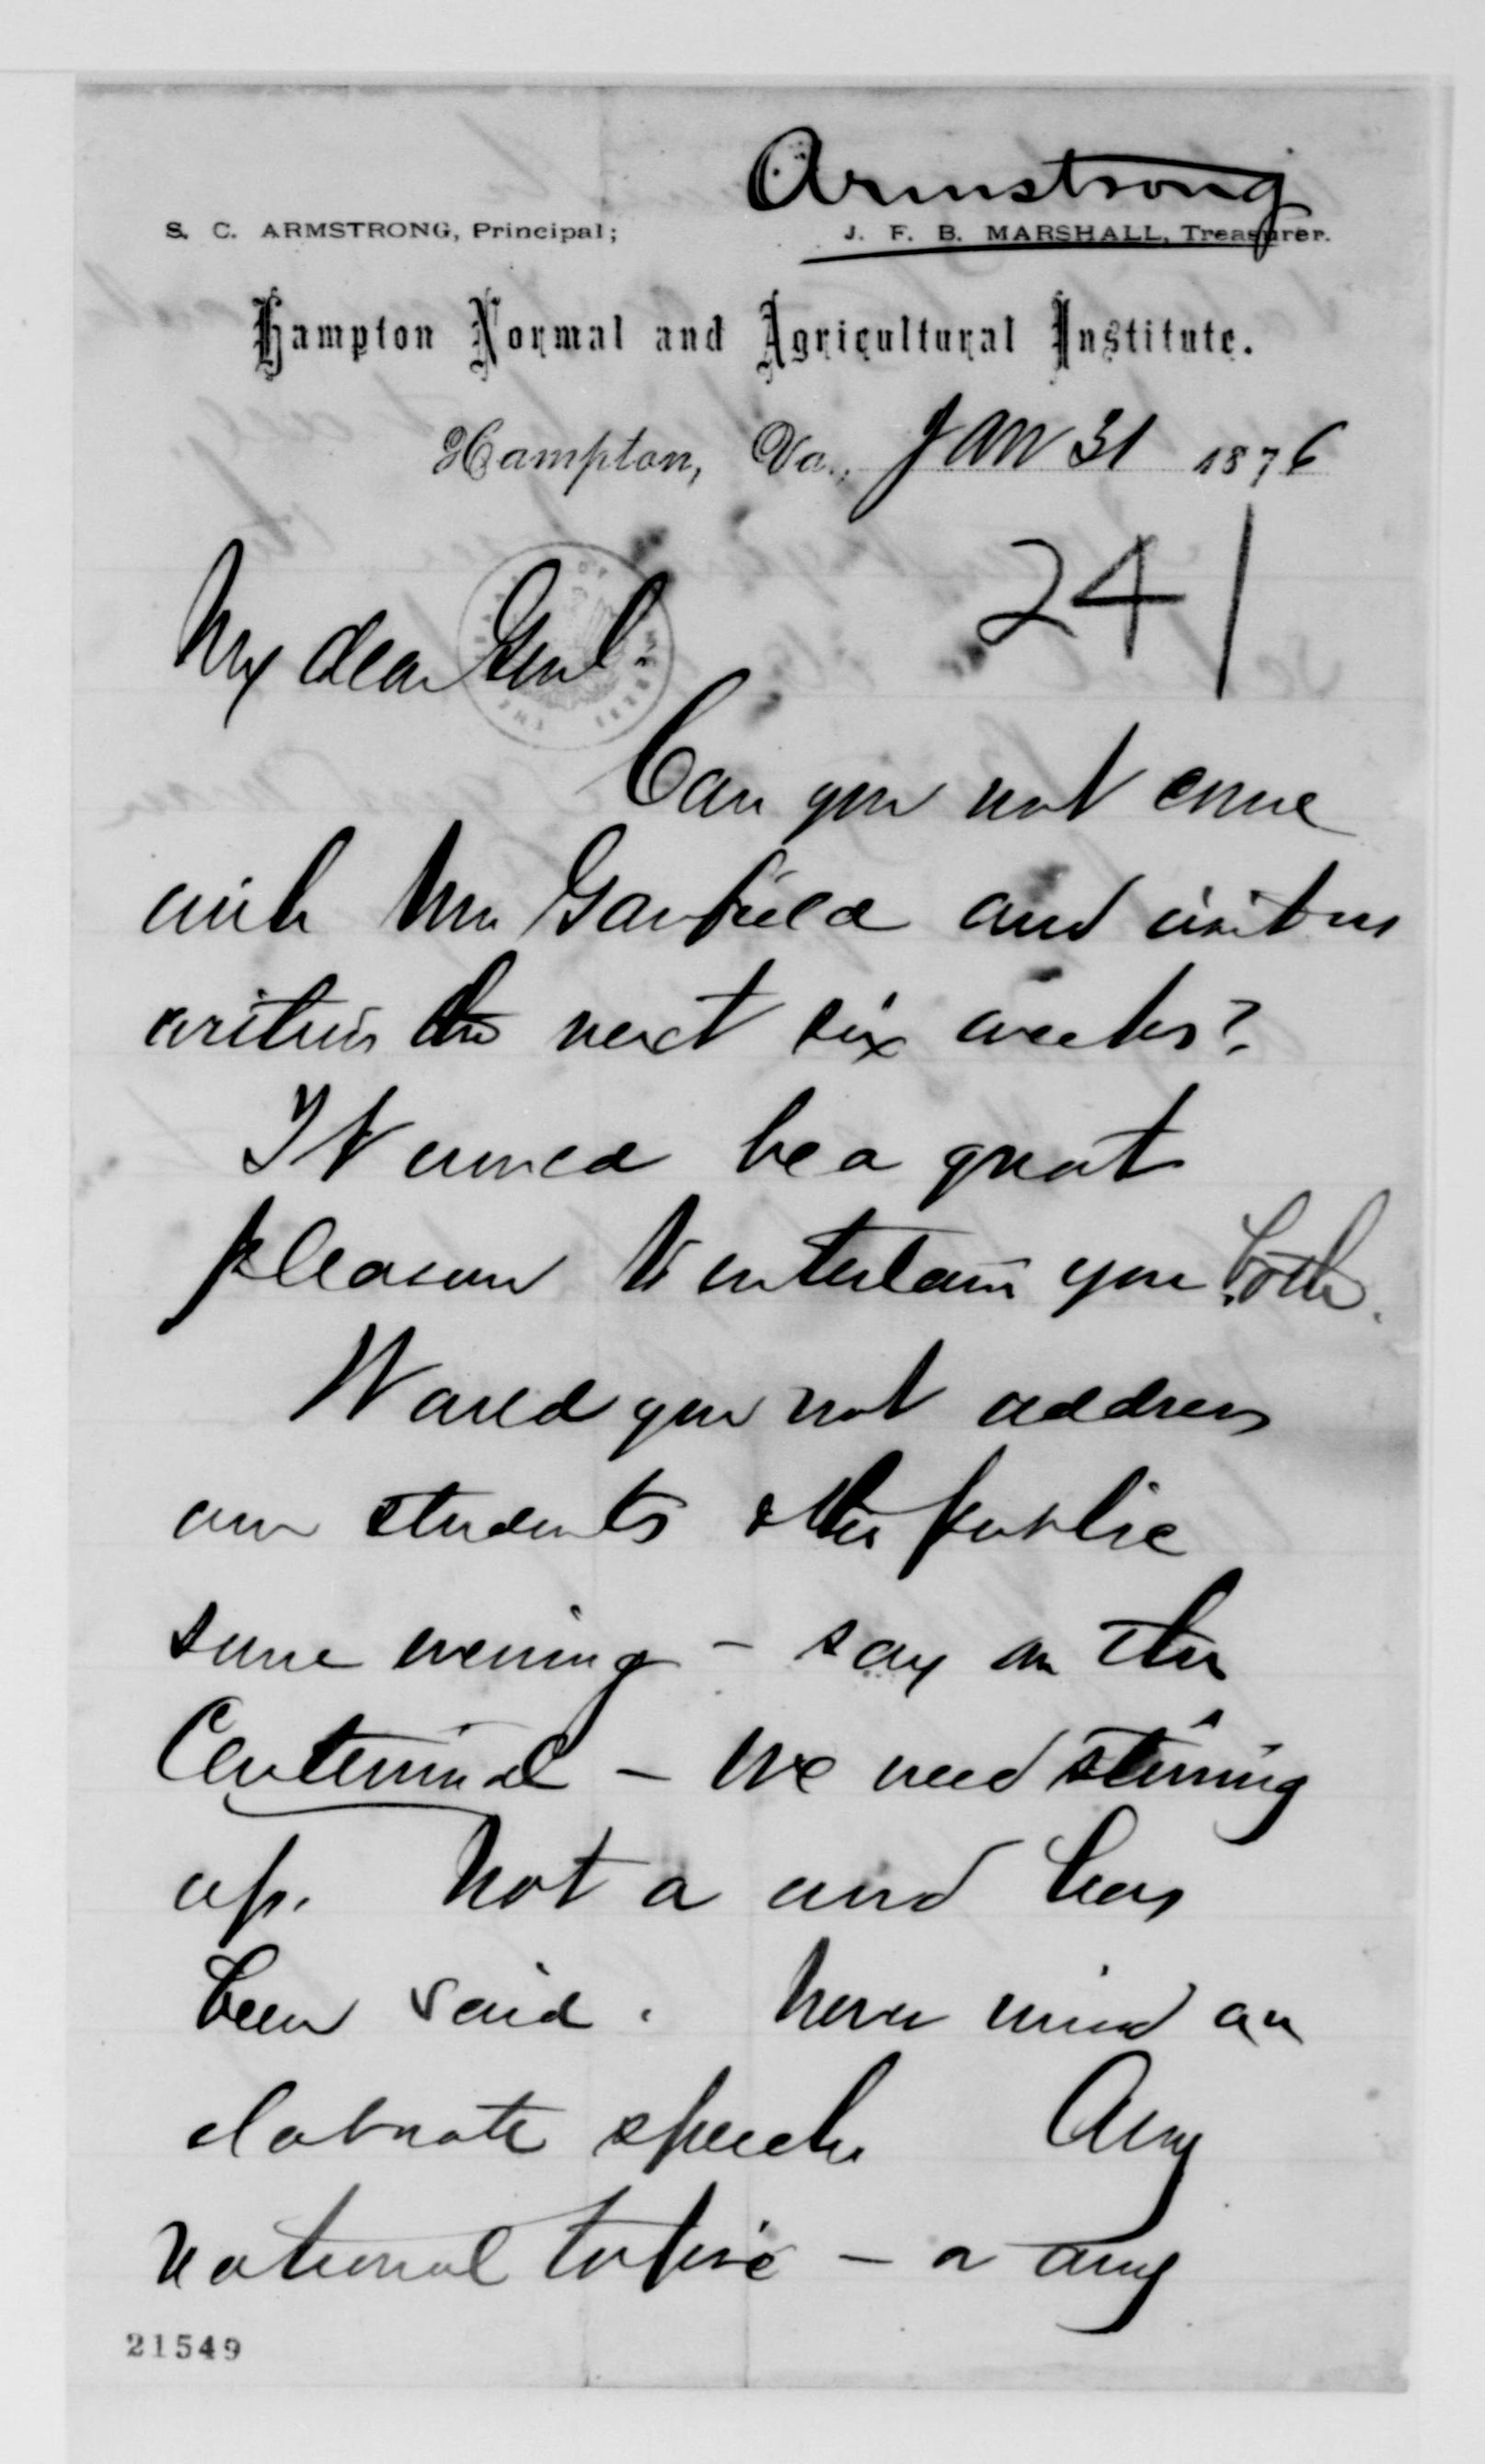 Armstrong
S. C. ARMSTRONG, Principal; J. F. B. MARSHALL, Treasurer.
Hampton Normal and Agricultural Institute.
Hampton, Va., JAN 31 1876
241
My dear Genl.
Can you not come
with Mrs Garfield and visit us
within the next six weeks?
It would be a great
pleasure to entertain you both.
Would you not address
our students & the public
some evening – say on the
Centennial – We need stirring
up. Not a word has
been said. Never mind an
elaborate speech Any
national topic – or any
21549